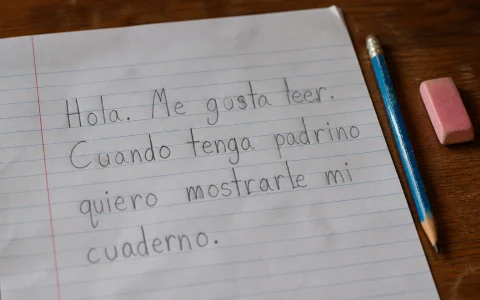 Hola. Me gusta leer.
Cuando tenga padrino
quiero mostrarle mi
cuaderno.